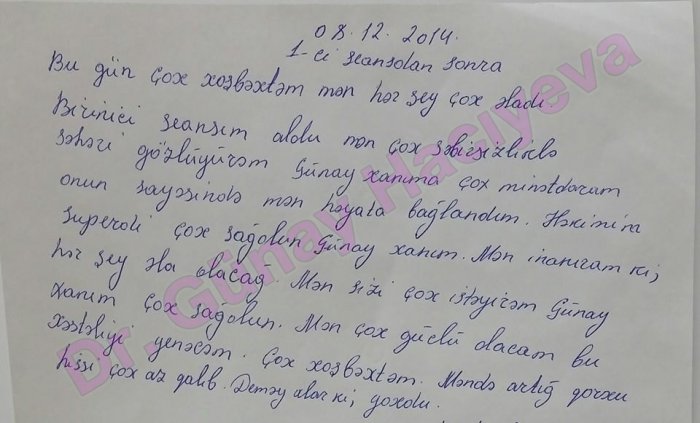 08.12.2014.
1-ci seansdan sonra
Bu gün çox xoşbəxtəm mən hər şey çox əladı.
Birinici seansım oldu mən çox səbirsizliklə
səhəri gözlüyürəm Günay xanıma çox minətdaram
onun sayəsində mən həyata bağlandım. Həkimim
superdi çox sağolun Günay xanım. Mən inanıram ki,
hər şey əla olacag Mən sizi çox istəyirəm Günay
xanım çox sağolun. Mən çox güclü olacam bu
xəstəliyi yenəcəm. Çox xoşbəxtəm. Məndə artığ qorxu
hissi çox az qalıb. Deməy olar ki, yoxdu.
Dr. Günay Hacıyeva